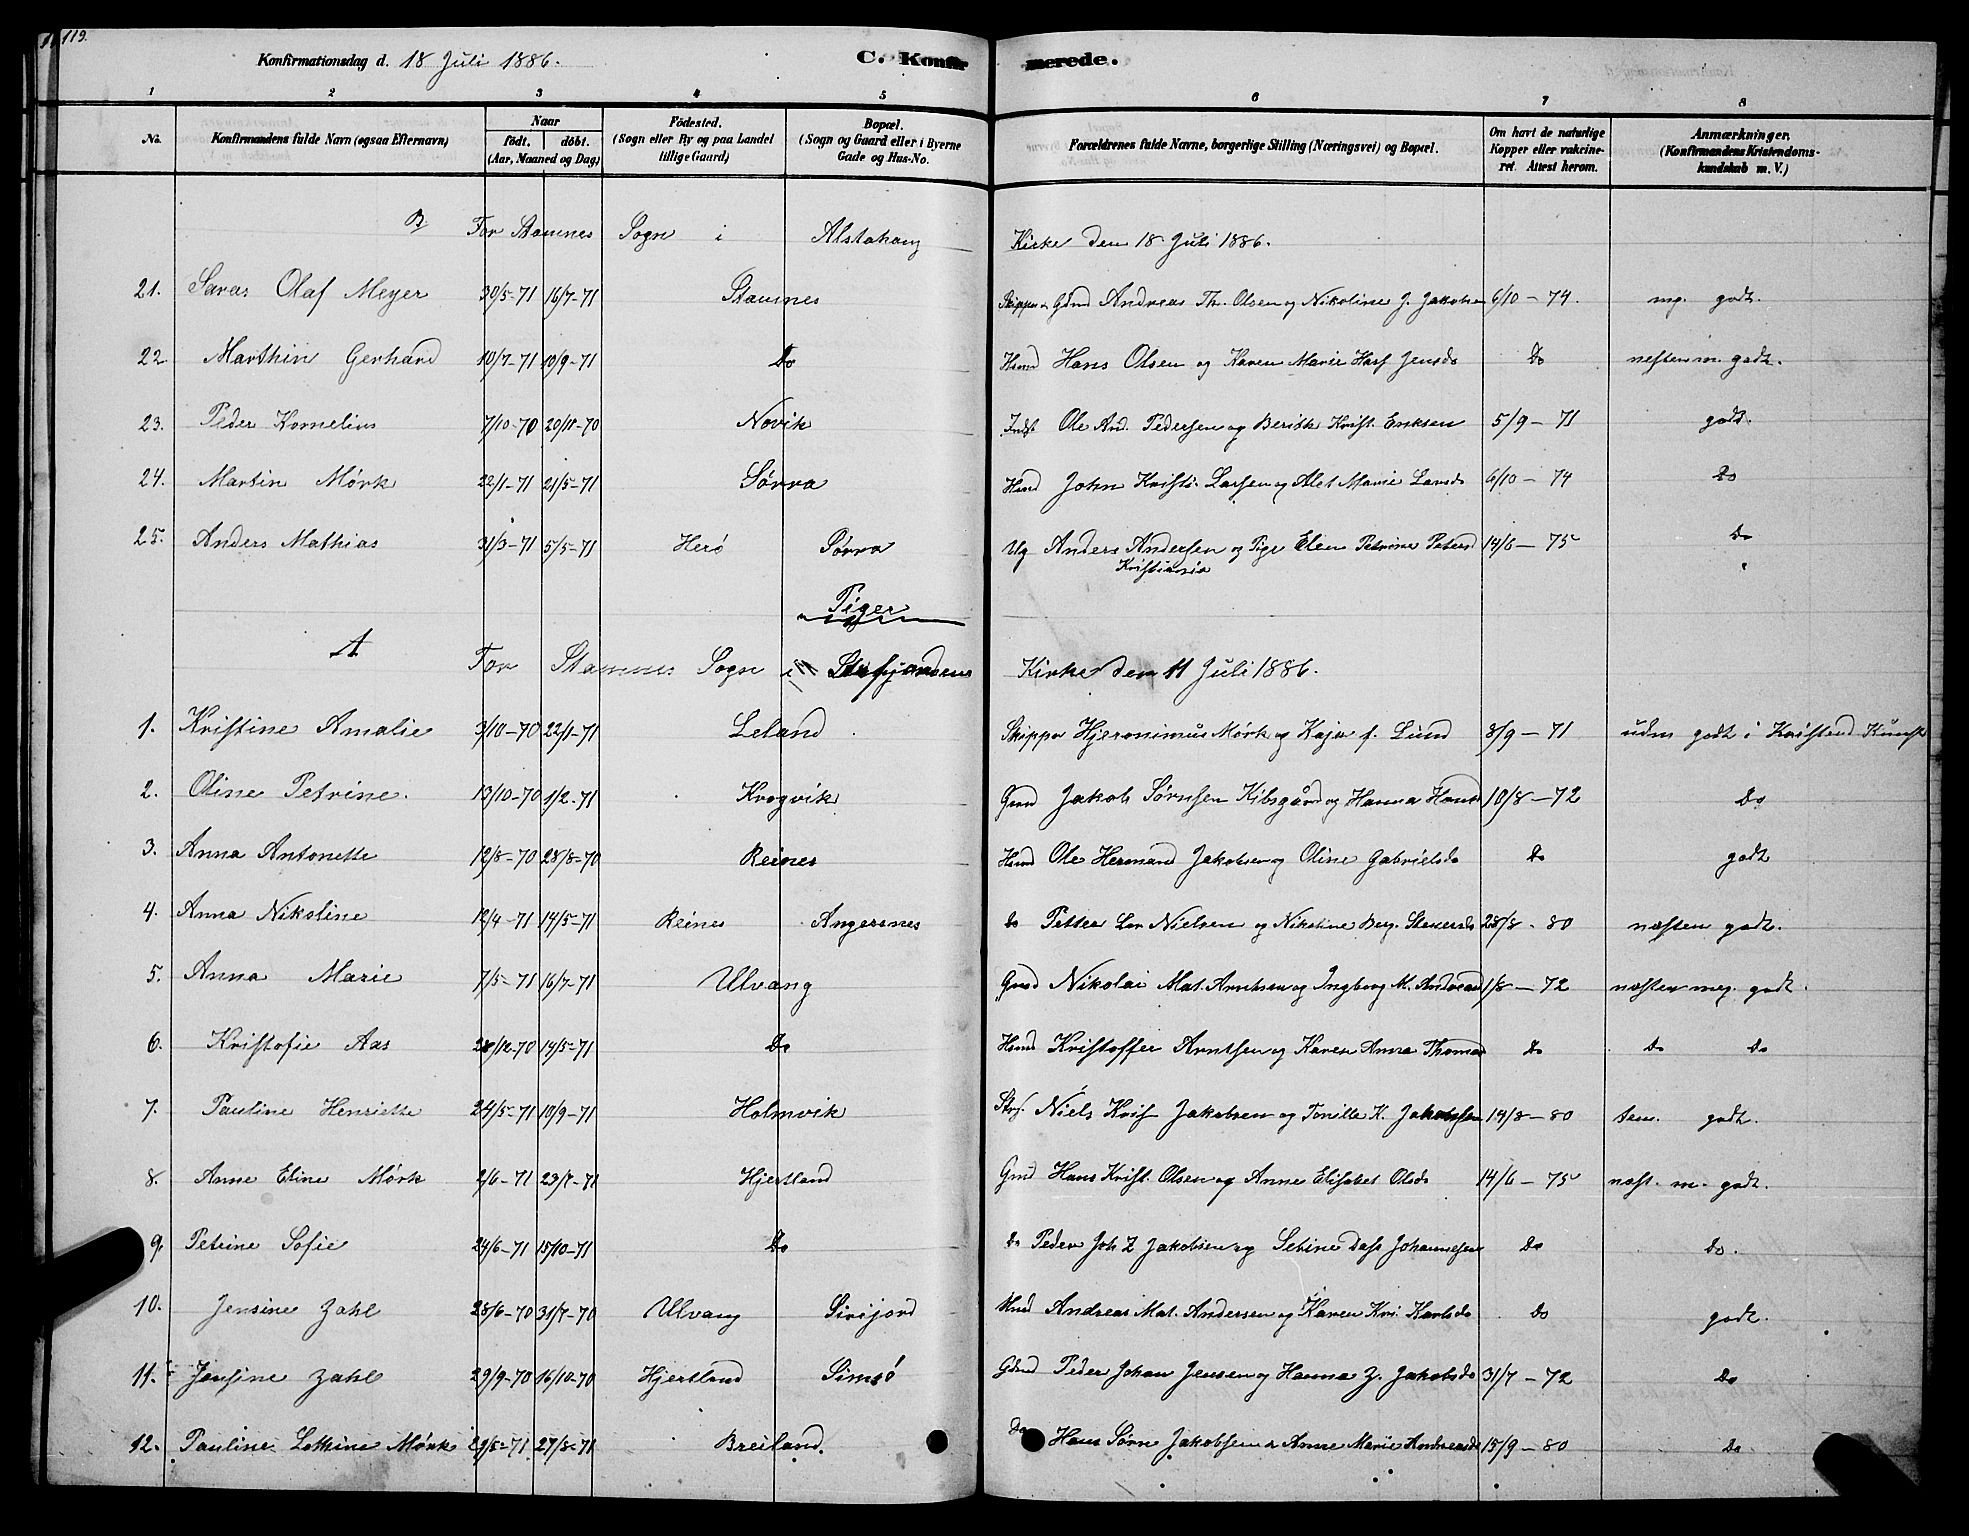 119.
Konfirmationsdag d. 18 Juli 1886.
C. Konfirmerede.
1 2 3 4 5 6 7 8
No. Konfirmandens fulde Navn (ogsaa Efternavn) Naar født. døbt. (Aar, Maaned og Dag) Fødested. (Sogn eller By og paa Landet tillige Gaard) Bopæl. (Sogn og Gaard eller i Byerne Gade og Hus-No. Forældrenes fulde Navne, borgerlige Stilling (Næringsvei) og Bopæl. Om havt de naturlige Kopper eller vakcineret. Attest herom. Anmærkninger. (Konfirmandens Kristendomskundskab m. V.)
B. For Stamnes Sogn i Alstahaug Kirke den 18 Juli 1886.
21. Olaf Meyer 30/5-71 16/7-71 Stamnes Skipper Gmd Andreas Th. Olsen og Nikoline J. Jakobsen 6/10 - 74. mg. godt.
22 Marthin Gerhard 10/7-71 10/9-71 Do Hmd Hans Olsen og Karen Marie Jensd Do nesten m. godt.
23. Peder Kornelius 7/10-70 20/11-70 Novik Indst Ole And. Pedersen og Berith Krist. Eriksen 5/9 - 71 godt.
24. Martin Mørk 22/1-71 21/5-71 Sørra Hmd John Larsen og Alet Marie Larsd 6/10 - 74 Do
25. Anders Mathias 31/3-71 5/5-71 Herø Sørra Ug Anders Andersen og Pige Elen Petrine Petersd 14/6 - 75 Do
Kristiania
Piger
A For Stamnes Sogn i Kirke den 11 Juli 1886.
1. Kristine Amalie 3/10-70 22/1-71 Leland Skipper Hjeronimus Mørk og Kaja f. Lund 8/9 - 71 udm godt i Kristend Kunst
2. Oline Petrine. 13/10-70 1/2-71 Krogvik Gmd Jakob Sørnsen Kibsgård og Hanna Hansd 10/8 - 72 Do
3. Anna Antonette 12/8-70 28/8-70 Reines Hmd Ole Hermand Jakobsen og Oline Gabrielsd Do godt
4. Anna Nikoline 12/4-71 14/5-71 Reines Angersnes Do Petter Nielsen og Nikoline Berg. 28/8 - 80 næsten godt.
5. Anna Marie 7/5-71 16/7-71 Ulvang Gmd Nikolai Mat. Arntsen og Ingborg M. Andreasd 1/8 - 72 næsten meg. godt.
6. Kristofie Aas 28/12-70 14/5-71 Do Hmd Kristoffer Arntsen og Karen Anna Thomasd Do Do Do
7. Pauline Henriette 24/5-71 10/9-71 Holmvik Strs. Niels Krist Jakobsen og Tonille K. Jakobsen 14/8 - 80 tem. godt.
8. Anne Eline Mørk 2/6-71 23/7-71 Hjertland Gmd Hans Krist. Olsen og Anne Elisabet Olsd 14/6 - 75 næst. m. godt.
9. Petrine Sofie 24/6-71 15/10-71 Do Do Peder Joh Z Jakobsen og Sebine Dass Johannesen Do Do.
10. Jensine Zahl 28/6-70 31/7-70 Ulvang Sirijord Hmd Andreas Mat. Andersen og Karen Kri. Karlsd Do godt.
11. Jensine Zahl 29/9-70 16/10-70 Hjertland Simsø Gmd Peder Johan Jensen og Hanna Z. Jakobsd 31/7 - 72 Do
12. Pauline Lethine Mørk 29/5-71 27/8-71 Breiland. Do Hans Sørn Jakobsen & Anne Marie Andreasd 15/9 - 80 Do